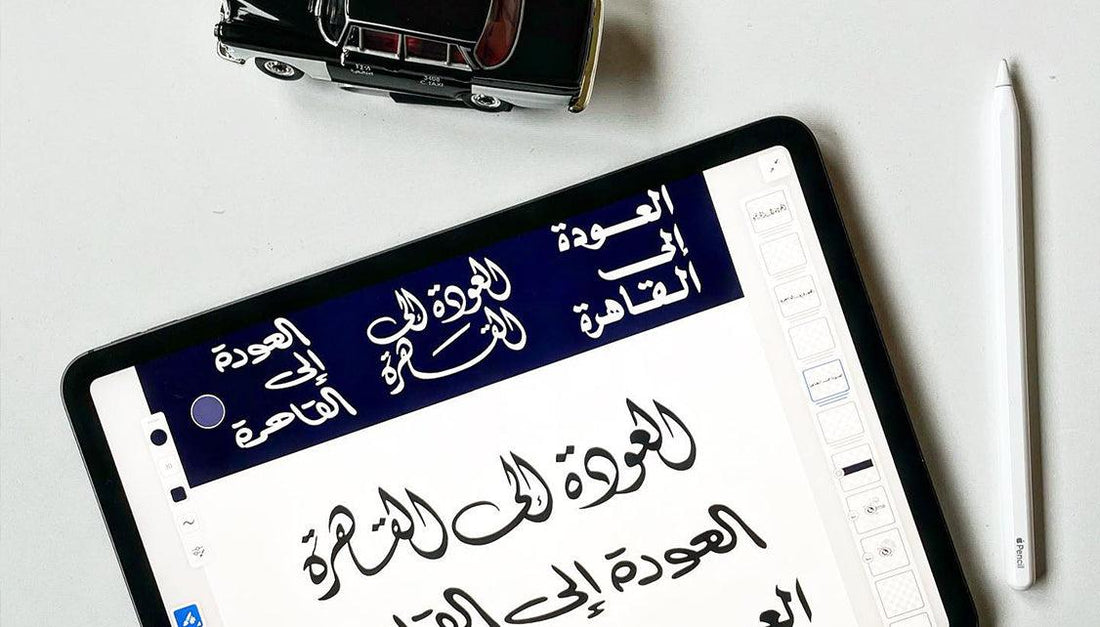 العودة
إلى
القاهرة
العودة إلى
القاهرة
العودة
إلى
القاهرة
العودة إلى القاهرة
العودة إلى
Pencil